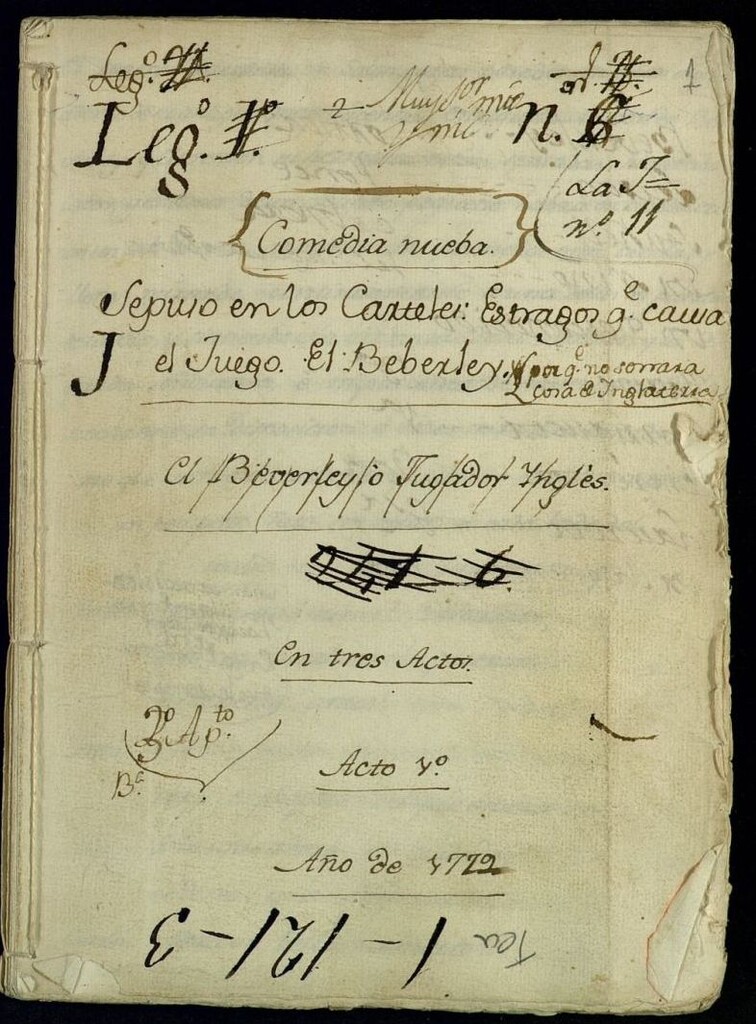 Leg.º
1
Leg.º 1.º
n. 6
La J=
n.º 11
Comedia nueba.
Sepuso en los Carteles: Estragos q.e causa
J el Juego. El Beberley,
porq.e no
cosa de Inglaterra
El Beverley, ò Jugador Inglès.
En tres Actos.
2.º Ap.to
B.e
Acto 1.º
Año de 1772
Tea 1-121-3